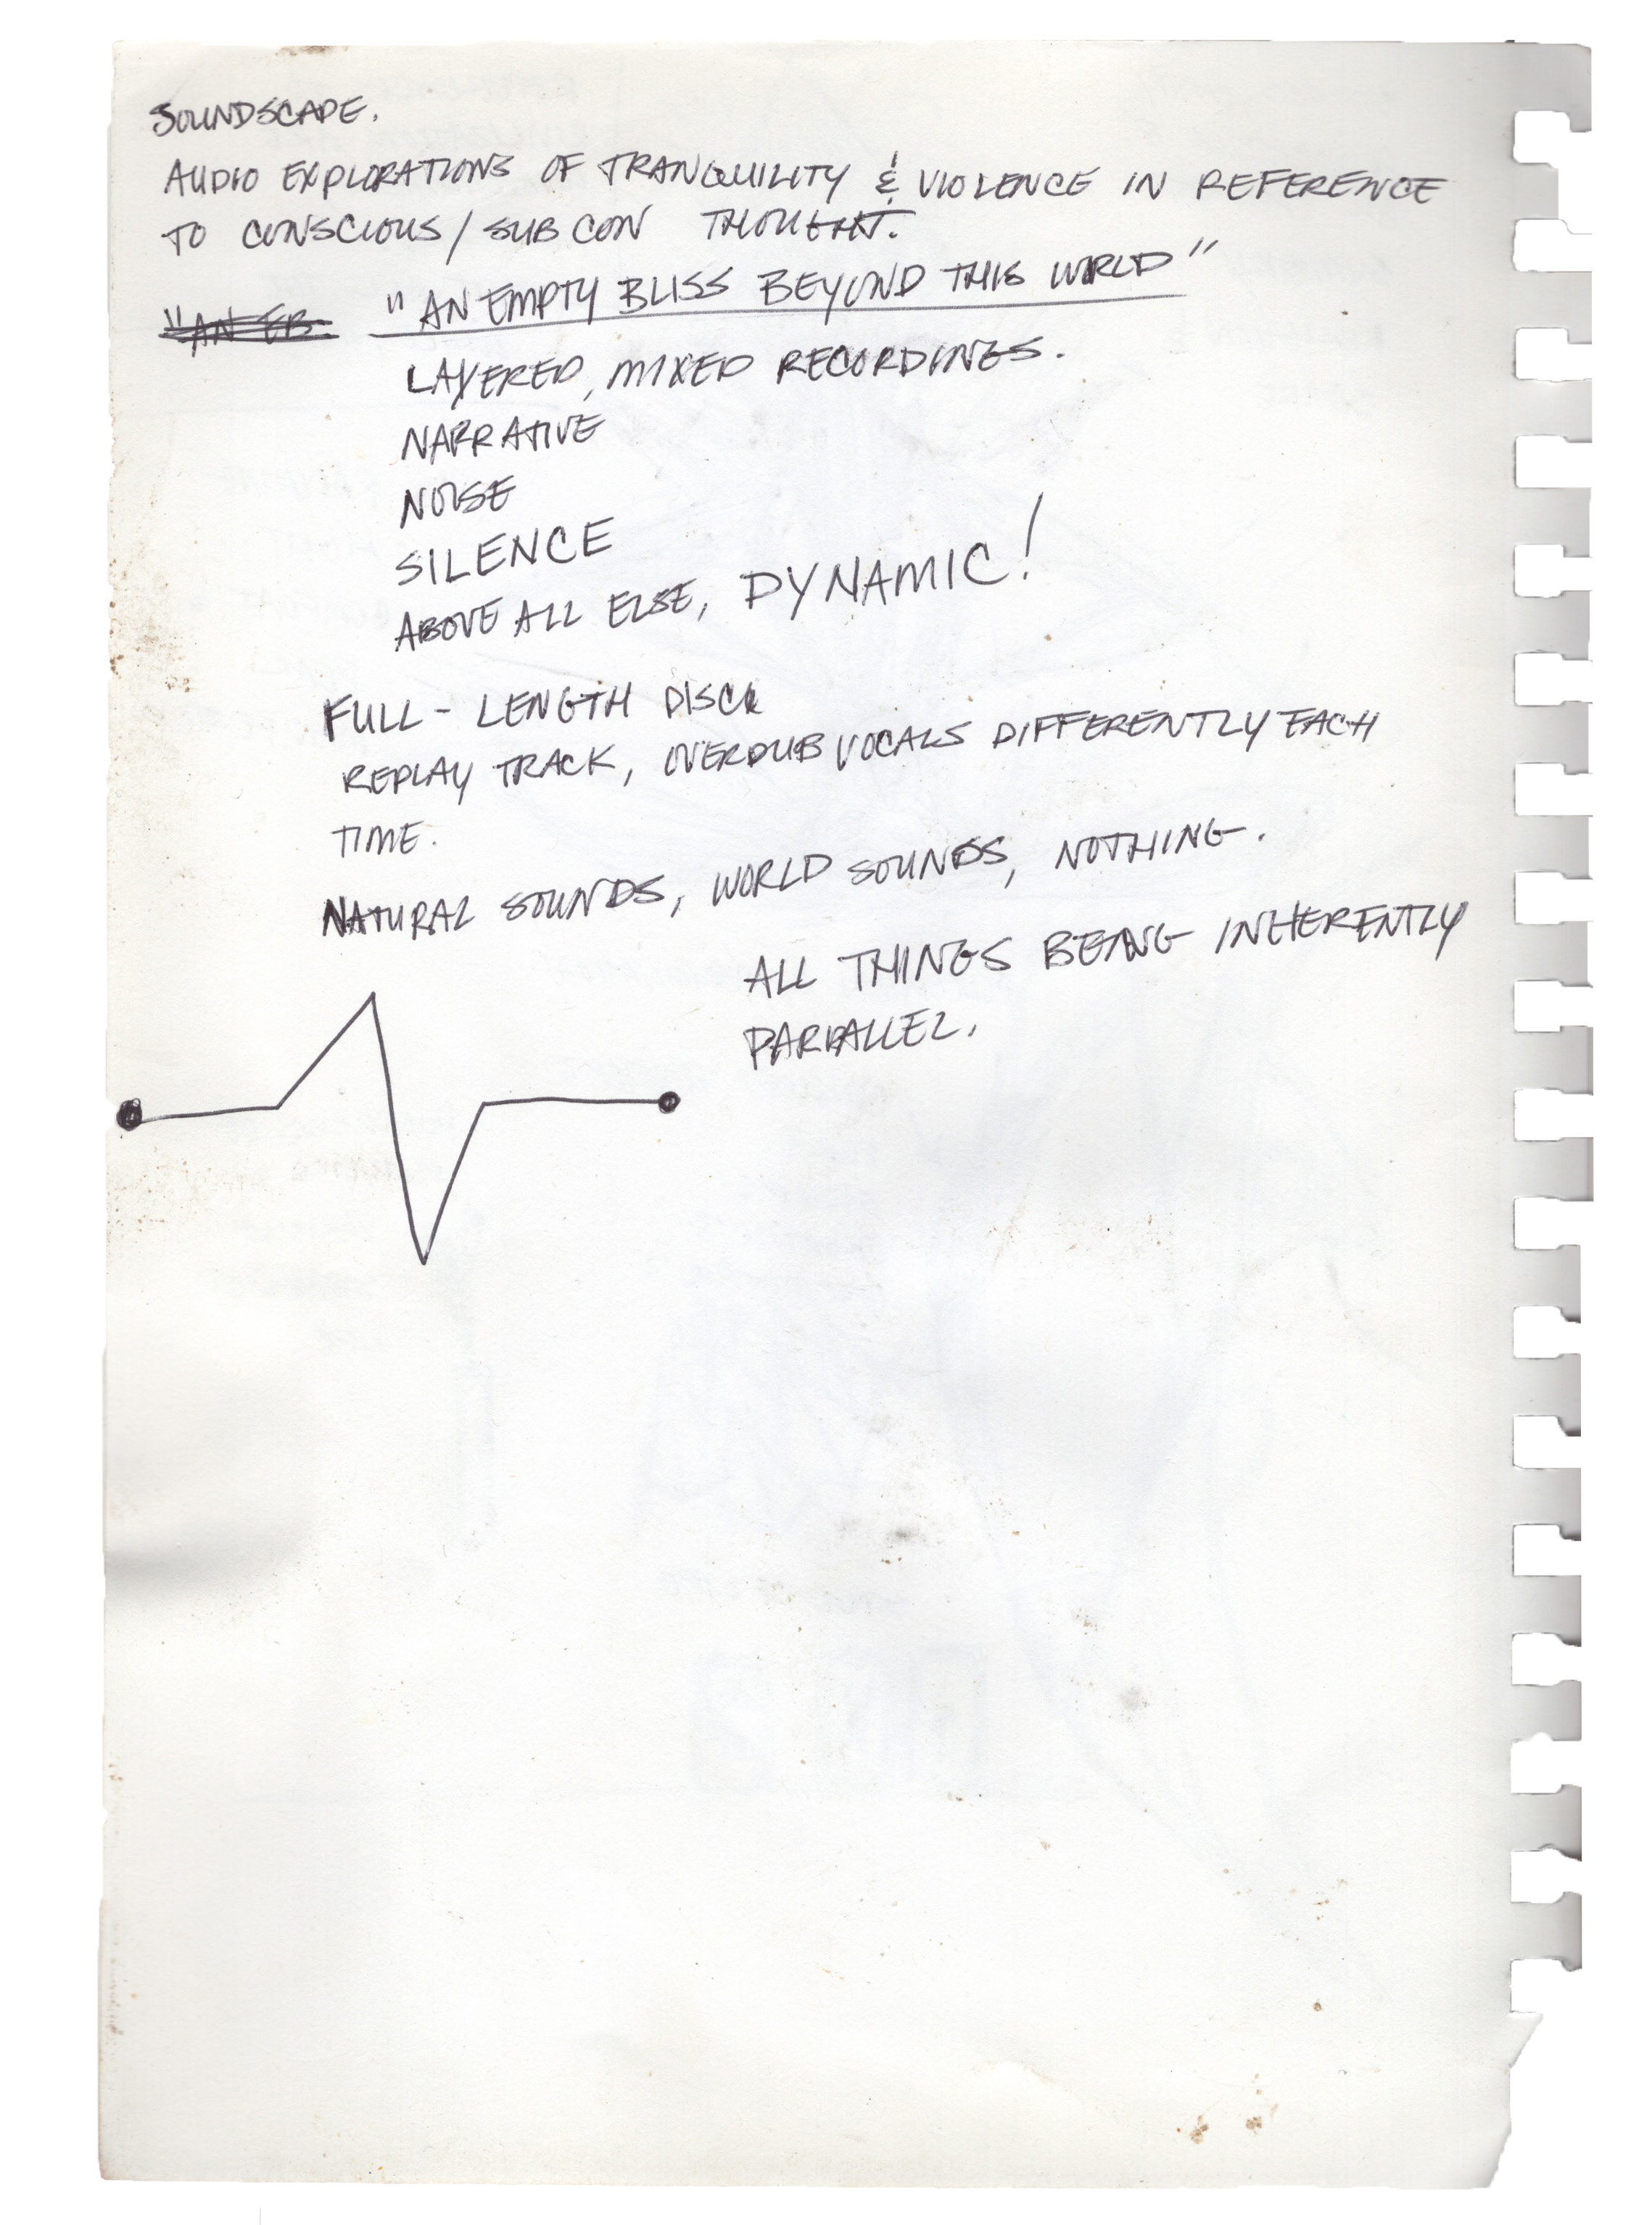 SOUNDSCAPE.
AUDIO EXPLORATIONS OF TRANQUILITY & VIOLENCE IN REFERENCE
TO CONSCIOUS / SUB CON THOUGHT.
"AN EB. "AN EMPTY BLISS BEYOND THIS WORLD"
LAYERED, MIXED RECORDINGS.
NARRATIVE
NOISE
SILENCE
ABOVE ALL ELSE, DYNAMIC!
FULL - LENGTH DISC
REPLAY TRACK, OVERDUB VOCALS DIFFERENTLY EACH
TIME.
NATURAL SOUNDS, WORLD SOUNDS, NOTHING.
ALL THINGS BEING INHERENTLY
PARALLEL.